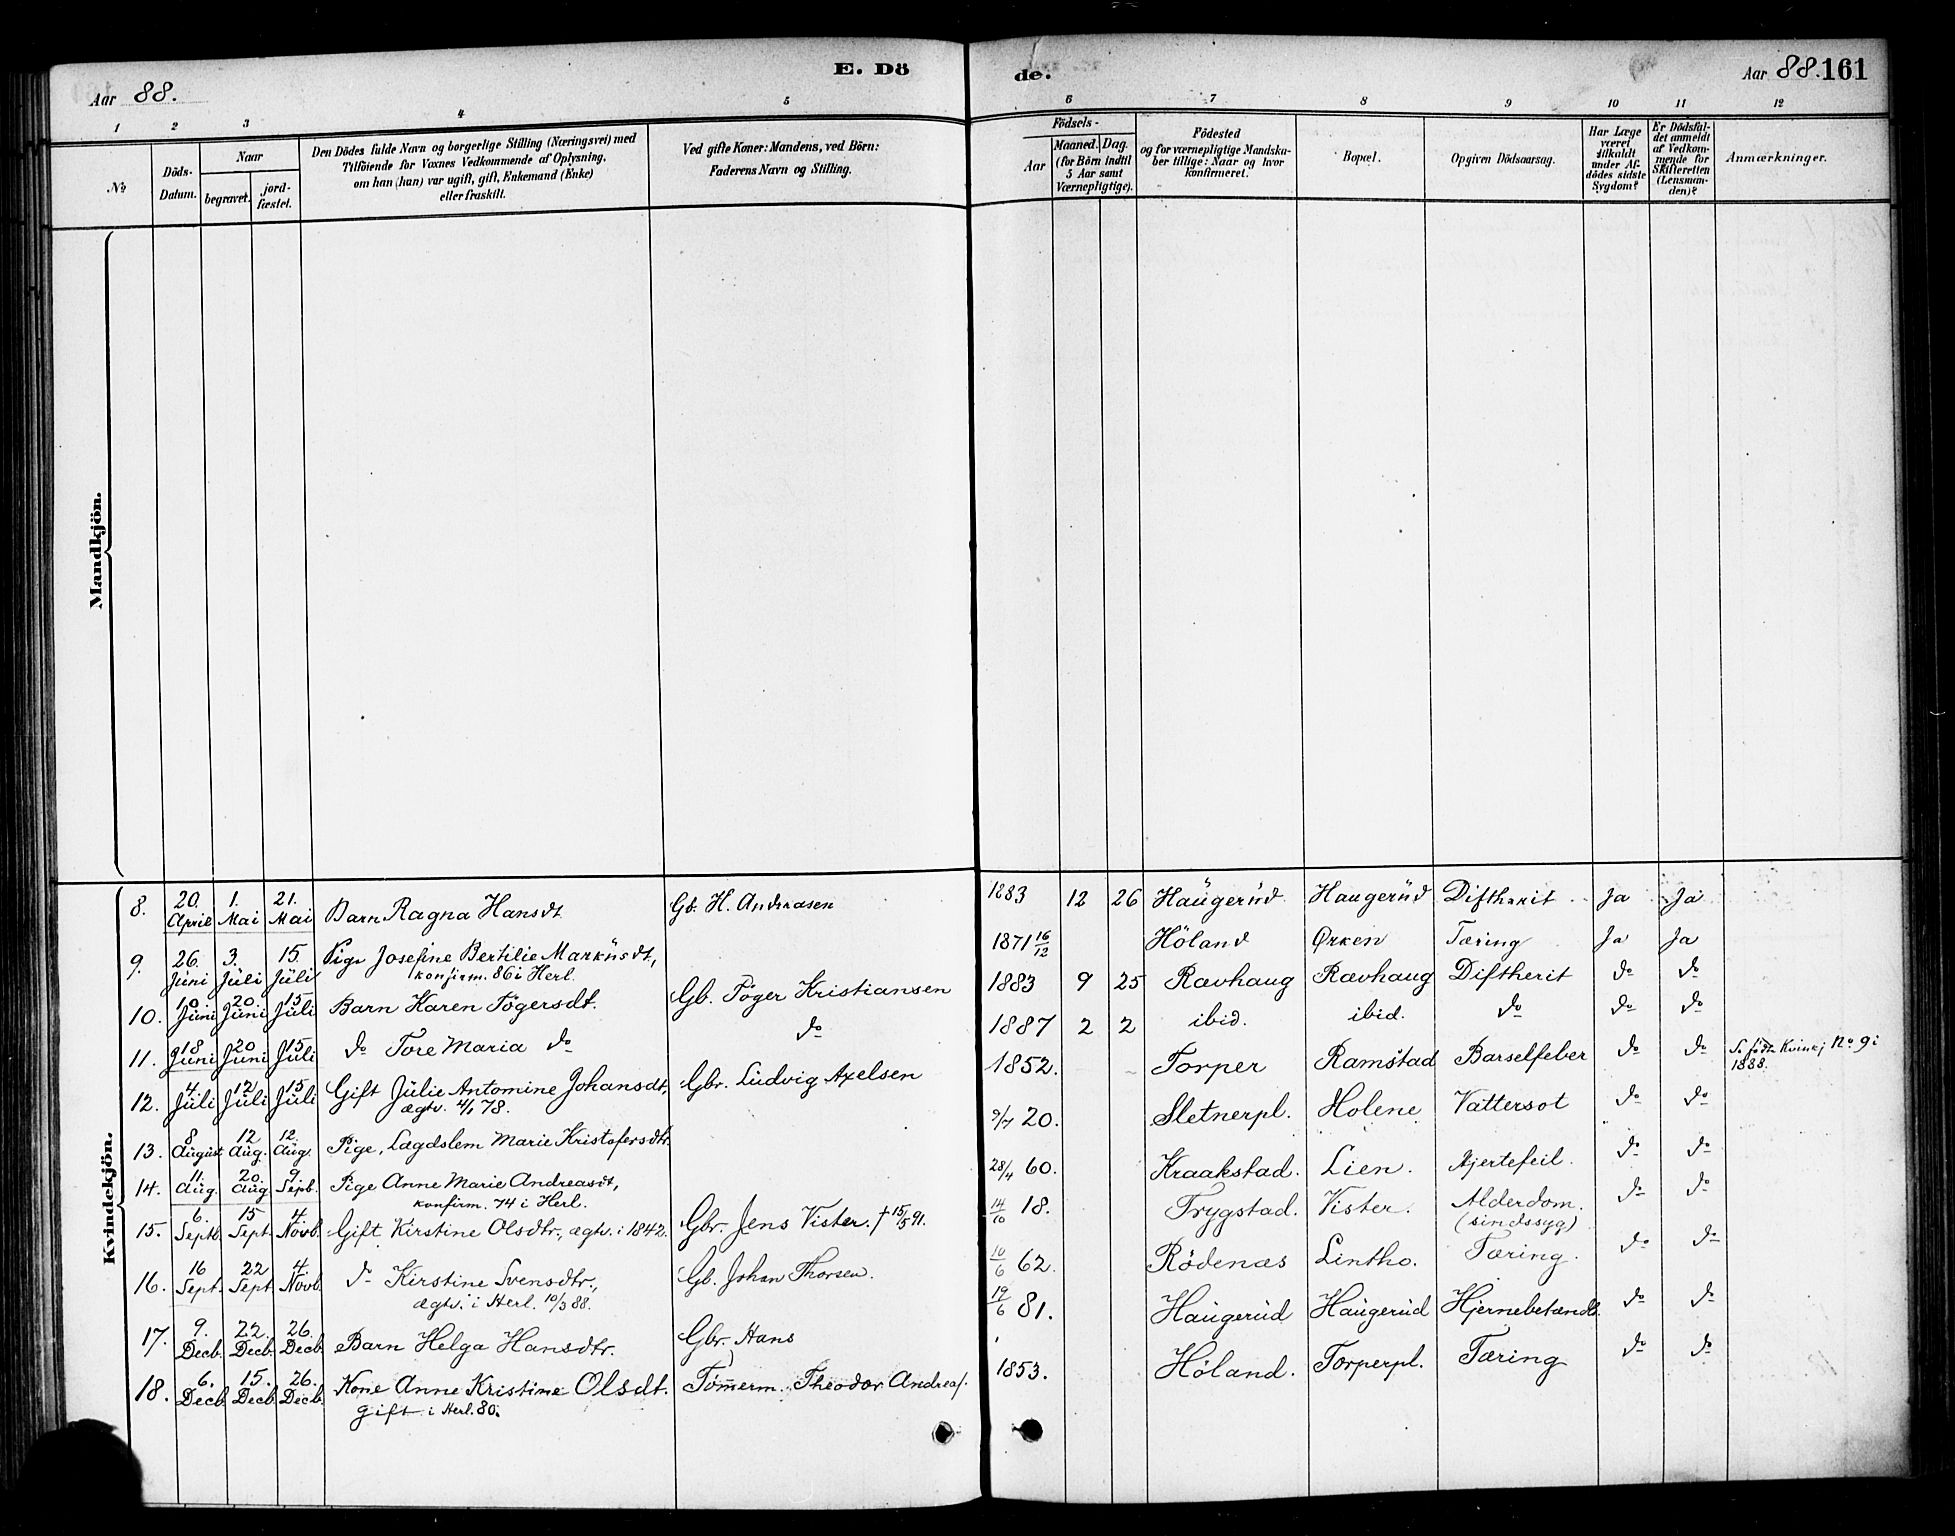 Aar 88.
E. Dö
de.
Aar 88. 161
1 2 3 4 5 6 7 8 9 10 11 12
No
Döds-
Datum.
Naar
begravet.
jord-
fæstet.
Den Dödes fulde Navn og borgerlige Stilling (Næringsvei) med
Tilföiende for Voxnes Vedkommende af Oplysning,
om han (hun) var ugift, gift, Enkemand (Enke)
eller fraskilt.
Ved gifte Koner: Mandens, ved Börn:
Faderens Navn og Stilling.
Födsels-
Aar
Maaned. Dag.
(for Börn indtil
5 Aar samt
Værnepligtige).
Födested
og for værnepligtige Mandska-
ber tillige: Naar og hvor
konfirmeret.
Bopæl.
Opgiven Dödsaarsag.
Har Læge
været
tilkaldt
under Af-
dödes sidste
Sygdom?
Er Dödsfal-
det anmeldt
af Vedkom-
mende for
Skifteretten
(Lensman-
den)?
Anmærkninger.
Mandkjön.
Kvindekjön.
8. 20. April 1. Mai 21. Mai Barn Ragna Hansdt Gb. H. Andreasen 1883 12 26 Haugerud Haugerud Diftherit Ja Ja
9. 26. Juni 3. Juli 15. Juli Pige Josefine Bertilie Markusdt, 1871 16/12 Höland Ørken Tæring Ja Ja
konfirm. 86 i Herl.
10. 10 Juni 20 Juni 15 Juli Barn Karen Tögersdt. Gb. Töger Kristiansen 1883 9 25 Ravhaug Rævhaug Diftherit do do
11. 18 Juni 20 Juni 15 Juli do Tore Maria do do 1887 2 2 ibid. ibid. do do do
12. 4 Juli 12 Juli 15 Juli Gift Julie Antomine Johansdt, Gbr. Ludvig Axelsen 1852. Torper Ramstad Barselfeber do do Se födte Kvinkj No 9 i
1888.
ægtv. 4/1 78.
13. 8 August 12 Aug. 12. Aug. Pige, Lægdslem Marie Kristofersdtr. 9/7 20. Sletnerpl. Holene Vattersot do do
14. 11. Aug. 20. Aug 9 Septb. Pige Anne Marie Andreasdt, 28/4 60. Kraakstad. Lien. Hjertefeil. do do
konfirm. 74 i Herl.
15. 6. Septb. 15 Sept. 4 Novb. Gift Kirstine Olsdtr., ægtv. i 1842. Gbr. Jens Vister. † 15/5 91. 14/10 18. Trygstad. Vister. Alderdom. do do
(sindssyg)
16. 16 Sept. 22 Sept 4. Novb. do Kirstine Svensdtr., Gb. Johan Thorsen. 10/6 62. Rödenæs Lintho. Tæring. do do
ægtv. i Herl. 10/3 88.
17. 9. Decb. 22. Decb. 26. Decb. Barn Helga Hansdtr. Gbr. Hans 19/6 81. Haugerud Haugerud Hjernebetændt. do do
18. 6. Decb 15. Decb. 26. Decb. Kone Anne Kristine Olsdt. Tömerm. Theodor Andreas. 1853. Höland. Torperpl. Tæring do do
gift i Herl. 80.